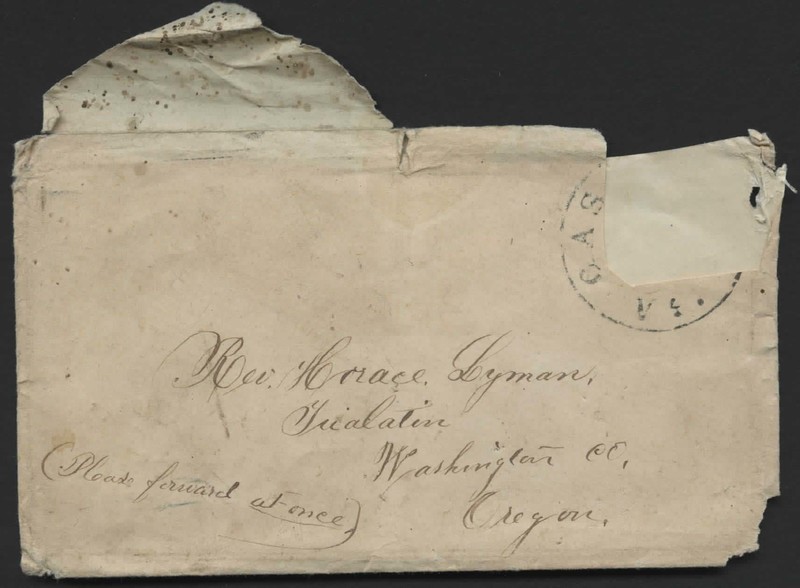 CAS
VT.
Rev. Horace Lyman,
Tualatin
Washington Co,
Oregon.
(Please forward at once)